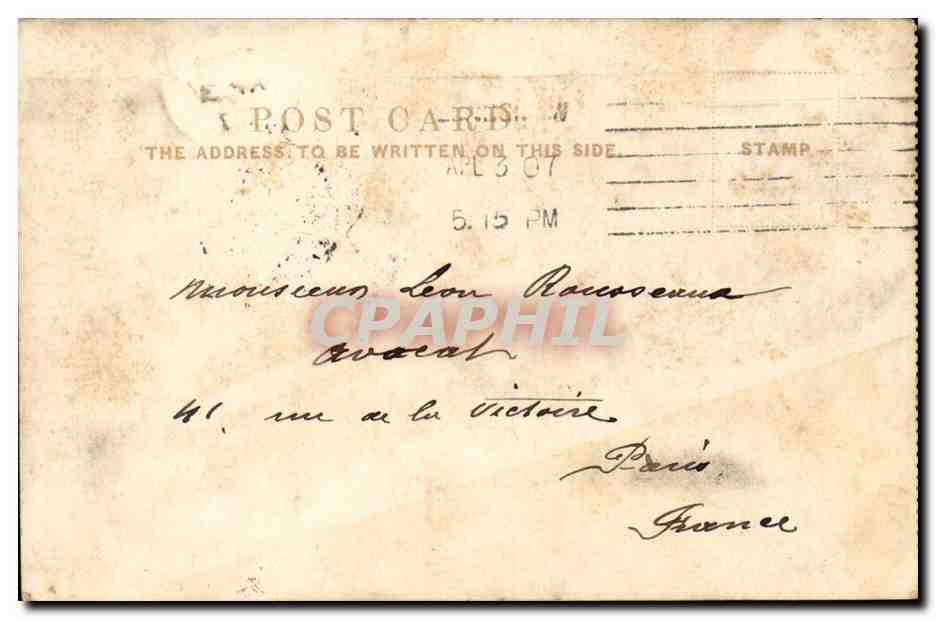 POST CARD
THE ADDRESS TO BE WRITTEN ON THIS SIDE.
STAMP
APL 3 07
5.15 PM
Monsieur Leon Rousseau
CPAPHIL
avocat
41, rue de la Victoire
Paris
France